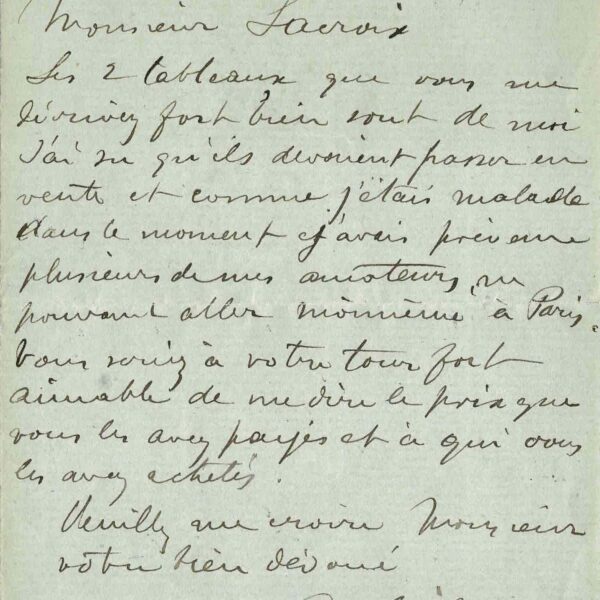 Monsieur Lacroix
Les 2 tableaux que vous me
décrivez fort bien sont de moi
J'ai su qu'ils devoient passer en
vente et comme j'étais malade
dans le moment j'avais prévenu
plusieurs de mes amateurs, ne
pouvant aller moi même à Paris.
Vous seriez à votre tour fort
aimable de me dire le prix que
vous les avez payés et à qui vous
les avez achetés.
Veuillez me croire Monsieur
votre bien dévoué